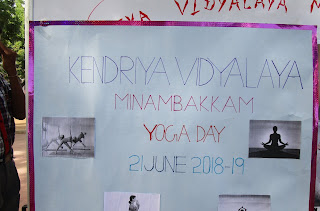 VIDYALAYA
KENDRIYA VIDYALAYA
MINAMBAKKAM
YOGA DAY
21 JUNE 2018-19